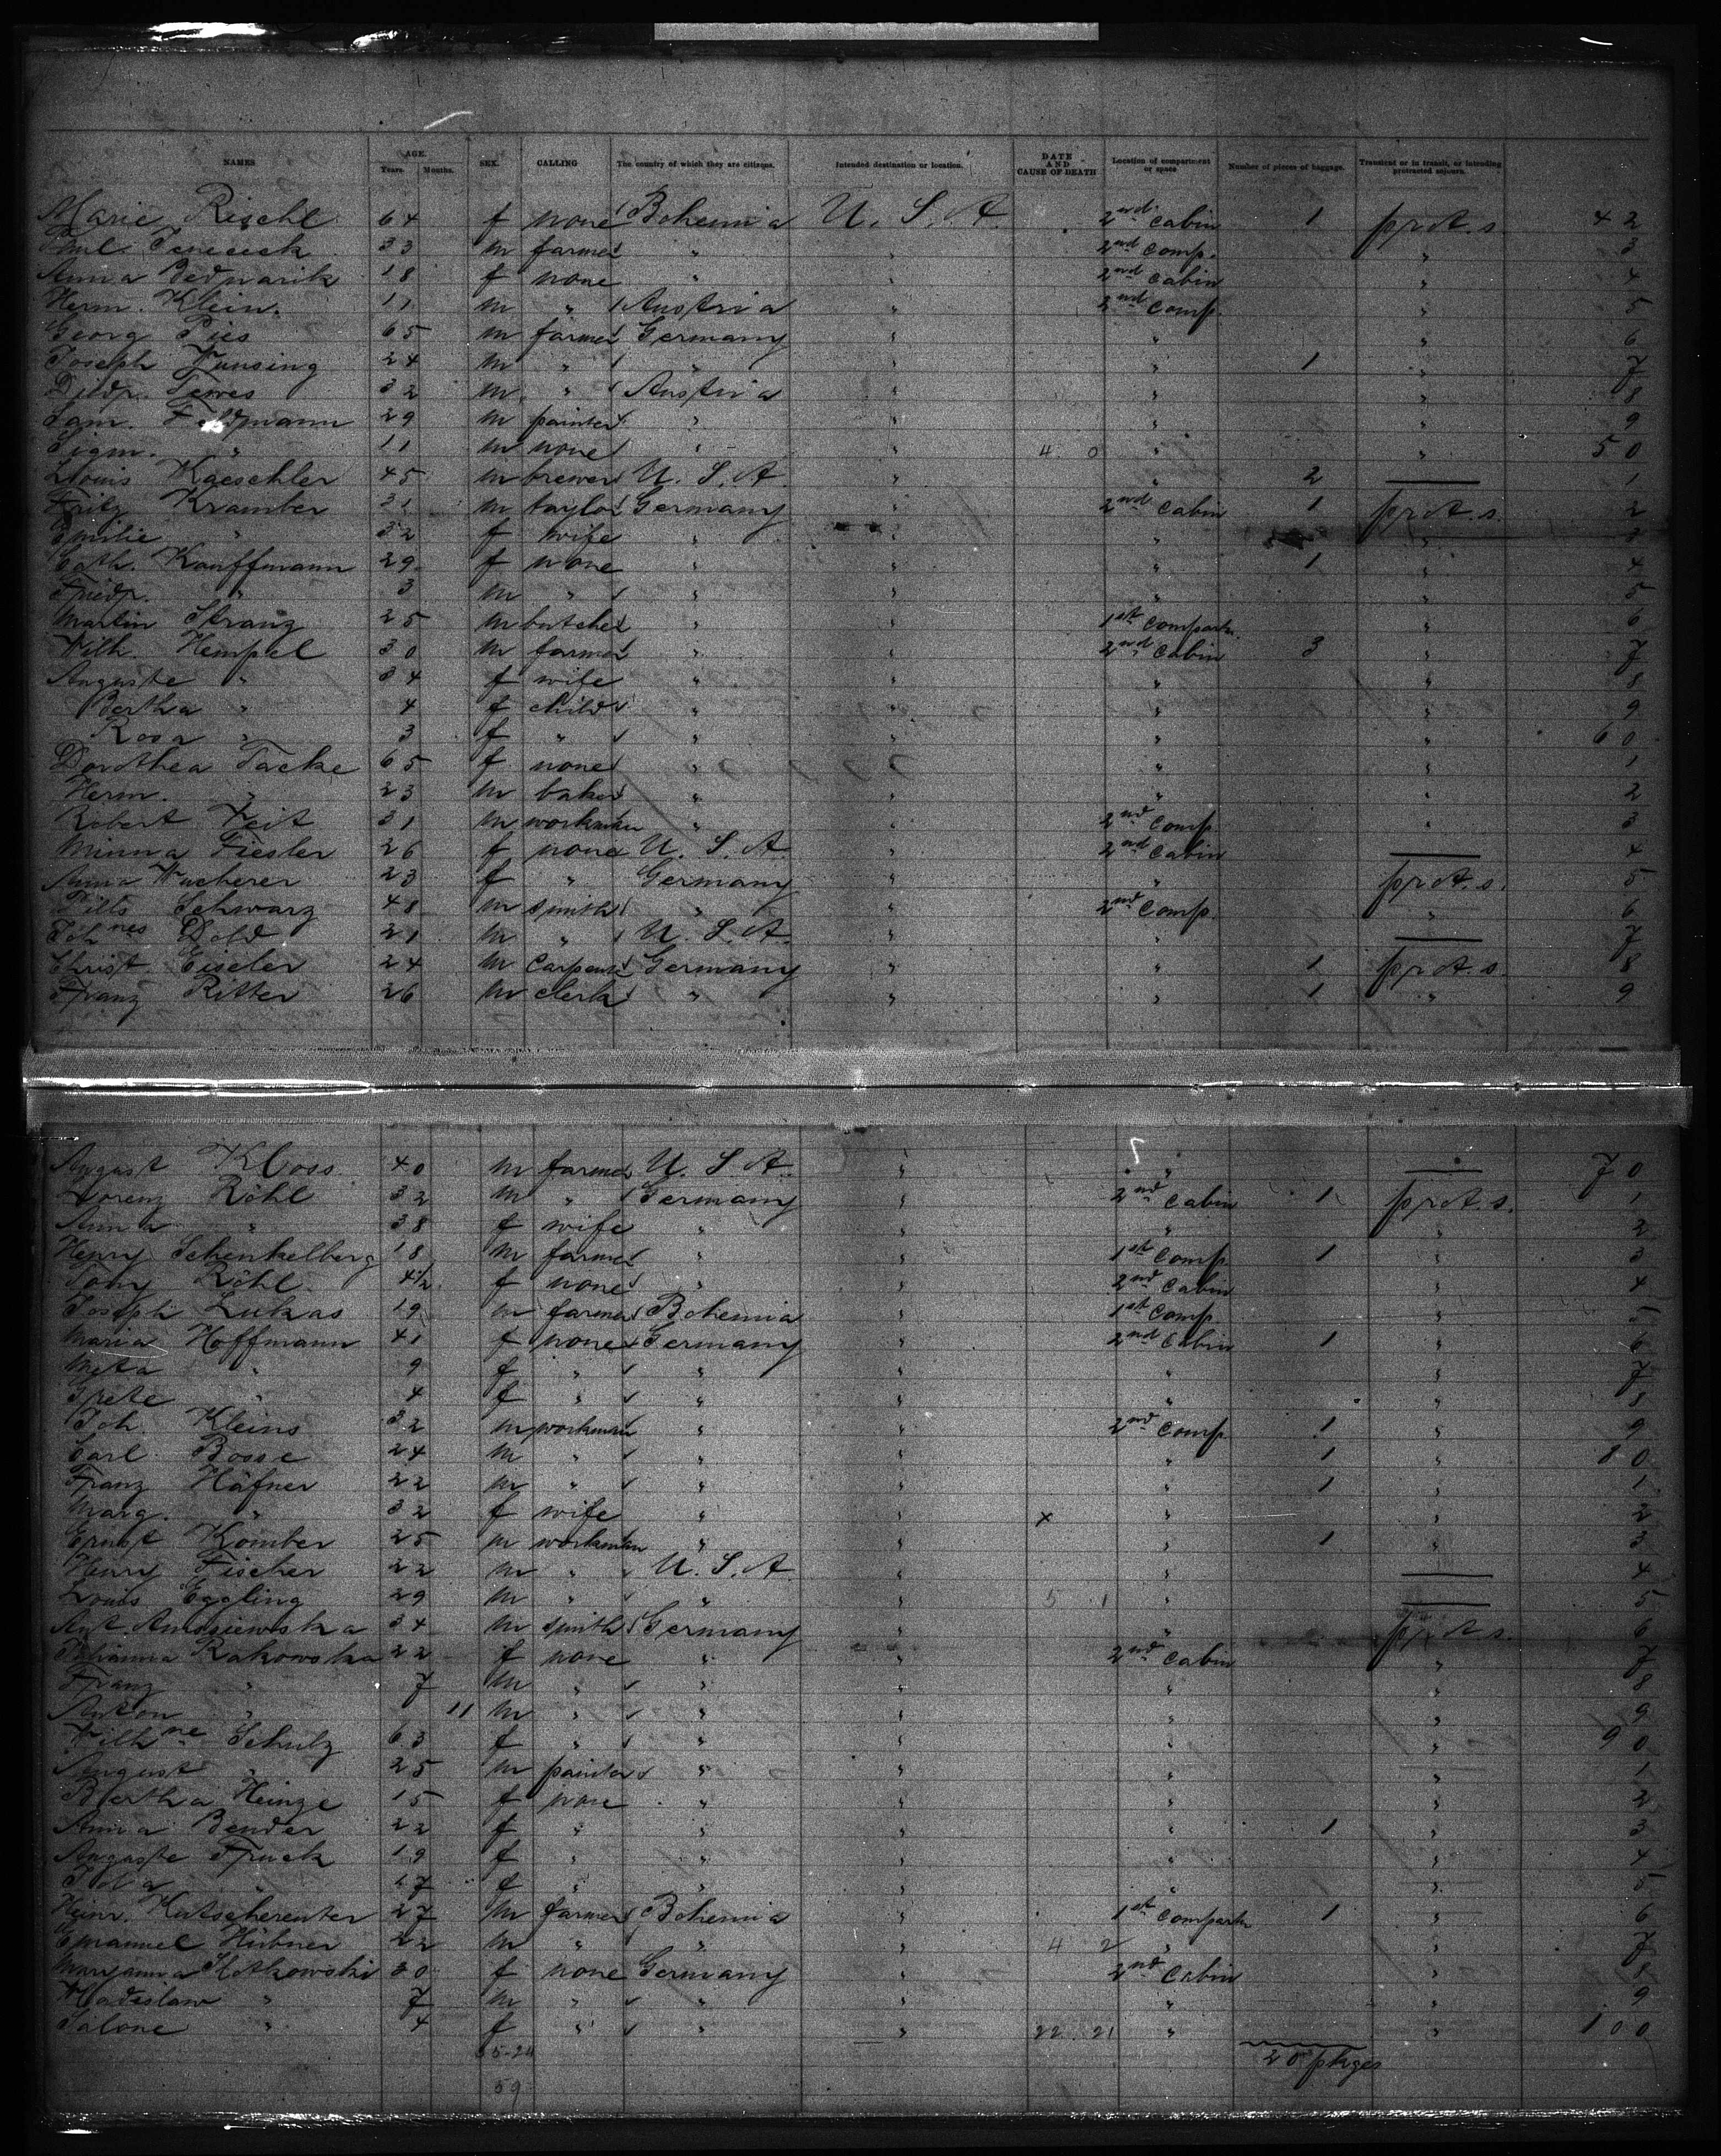 NAMES AGE. Years. Months. SEX. CALLING The country of which they are citizens. Intended destination or location. DATE AND CAUSE OF DEATH Location of compartment or space Number of pieces of baggage. Transient or in transit, or intending protracted sojourn.
Marie Rischl 64 f none Bohemia U. S. A. 2nd cabin 1 prot. s. 42
33 m farmer " " 2nd comp. " 3
Anna Bednarik 18 f none " " 2nd cabin " 4
Herm. Klein 11 m " Austria " 2nd comp. " 5
Georg Pies 65 m farmer Germany " " " 6
Joseph 24 m " " " " 1 " 7
Diedr. Tewes 32 m " Austria " " " 8
Sam. Feldmann 29 m painter " " " " 9
Sigm. " 11 m none " " 4 0 " " 50
Louis Kaeschler 45 m brewer U. S. A. " " 2 — 1
Fritz Kramber 31 m taylor Germany " 2nd cabin 1 prot. s. 2
Emilie " 32 f wife " " " " 3
Cath. Kauffmann 29 f none " " " 1 " 4
Friedr. " 3 m " " " " " 5
Martin Stranz 25 m butcher " " 1st compartm. " 6
Wilh. Hempel 30 m farmer " " 2nd cabin 3 " 7
Auguste " 34 f wife " " " " 8
Bertha " 4 f child " " " " 9
Rosa " 3 f " " " " " 60
Dorothea Tacke 65 f none " " " " 1
Herm. " 23 m baker " " " " 2
Robert Veit 31 m workman " " 2nd comp. " 3
Minna Fiesler 26 f none U. S. A. " 2nd cabin — 4
Anna Wucherer 23 f " Germany " " prot. s. 5
Schwarz 48 m smith " " 2nd comp. " 6
Johnes Dold 21 m " U. S. A. " " — 7
Christ. Eiseler 24 m carpenter Germany " " 1 prot. s. 8
Franz Ritter 26 m clerk " " " 1 " 9
August Kloss 40 m farmer U. S. A. " " — 70
Lorenz Röhl 32 m " Germany " 2nd cabin 1 prot. s. 1
Anna " 38 f wife " " " " 2
Henry Schenkelberg 18 m farmer " " 1st comp. 1 " 3
Tony Röhl 4 1/2 f none " " 2nd cabin " 4
Joseph Lukas 19 m farmer Bohemia " 1st comp. " 5
Maria Hoffmann 41 f none Germany " 2nd cabin 1 " 6
Meta " 9 f " " " " " 7
Grete " 4 f " " " " " 8
Joh. Kleins 32 m workman " " 2nd comp. 1 " 9
Carl Bosse 24 m " " " " 1 " 80
Franz Häfner 22 m " " " " 1 " 1
Marg. " 32 f wife " " x " " 2
Ernst Komber 25 m workman " " " 1 " 3
Henry Fischer 22 m " U. S. A. " " — 4
Louis Eggling 29 m " " " 5 1 " — 5
Ant. 34 m smith Germany " " prot. s. 6
Rakowska 22 f none " " 2nd cabin " 7
Franz " 7 m " " " " " 8
Anton " 11 m " " " " " 9
Wilhne Schulz 63 f " " " " " 90
August " 25 m painter " " " " 1
Bertha Heinze 15 f none " " " " 2
Anna Bender 22 f " " " " 1 " 3
Auguste 19 f " " " " " 4
Ida " 17 f " " " " " 5
Heinr. Kutscherenter 27 m farmer Bohemia " 1st compartm 1 " 6
Emanuel Hübner 22 m " " " 4 2 " " 7
Maryanna 30 f none Germany " 2nd cabin " 8
Wladislaw " 7 m " " " " " 9
Salone " 4 f " " " 22 21 " " 100
35-24 20 pkges
59